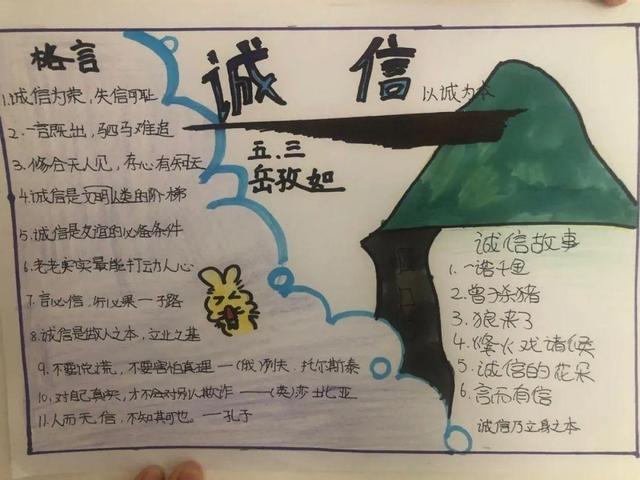 格言
诚信
以诚为本
五.三
岳孜如
1.诚信为荣，失信可耻
2.一言既出，驷马难追
3.修合无人见，存心有知天
4.诚信是文明人类的阶梯
5.诚信是友谊的必备条件
6.老老实实最能打动人心
7.言必信，行必果—子路
8.诚信是做人之本，立业之基
9.不要说谎，不要害怕真理——(俄)列夫.托尔斯泰
10.对自己真实，才不会对别人欺诈——(英)莎士比亚
11.人而无信，不知其可也。—孔子
诚信故事
1.一诺千金
2.曾子杀猪
3.狼来了
4.烽火戏诸侯
5.诚信的花朵
6.言而有信
诚信乃立身之本